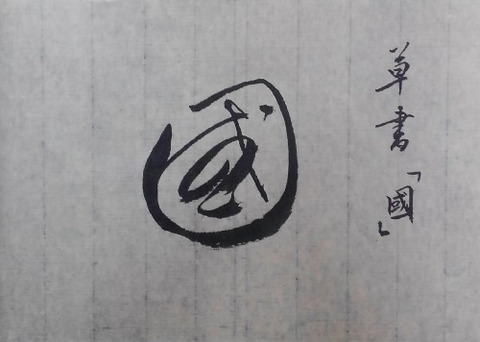 草書「國」
國